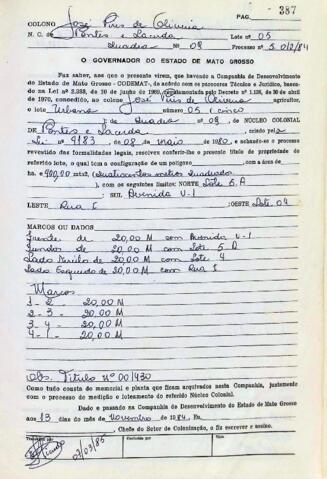 PAG. 387
COLONO José Pires de Oliveira
N. C. de Pontes e Lacerda Lote nº 05
Quadra nº 09 Processo nº 5.012/84
O GOVERNADOR DO ESTADO DE MATO GROSSO
Faz saber, aos que o presente virem, que havendo a Companhia de Desenvolvimento
do Estado de Mato Grosso - CODEMAT-, de acôrdo com os pareceres Técnico e Jurídico, basea-
dos na Lei nº 2.288, de 10 de junho de regulamentada pelo Decreto nº 1.138, de 30 de abril
de 1970, concedido, ao colono José Pires de Oliveira agricultor,
o lote Urbano nº 05 cinco
Quadra nº 09, DE NÚCLEO COLONIAL
DE Pontes e Lacerda criado pela
Lei nº 4183 de 08 de maio de 1980, e achando-se o processo
revestido das formalidades legais, resolveu conferir-lhe o presente título de propriedade do
referido lote, o qual tem a configuração de um polígono com a área de
ha. 400,00 metros quadrados
), com os seguintes limites: NORTE Lote 5-A
SUL Avenida V-1
LESTE Rua I OESTE Lote 04
MARCOS OU DADOS
Frente de 20,00 M com Avenida V-1
Fundos de 20,00 M com Lote 5 A
Lado Direito de 20,00 M com Lote 4
Lado Esquerdo de 20,00 M com Rua I
Marcos
1 - 2 - 20,00 M
2 - 3 - 20,00 M
3 - 4 - 20,00 M
4 - 1 - 20,00 M
Obs. Título nº 001430
Como tudo consta do memorial e planta que ficam arquivados nesta Companhia, juntamente
com o processo de medição e loteamento do referido Núcleo Colonial.
Dado e passado na Companhia de Desenvolvimento do Estado de Mato Grosso
aos 13 dias do mês de Novembro de 1984, Eu,
, Chefe do Setor de Colonização, o fiz escrever e assino.
Conferido por
Visto
07/03/85